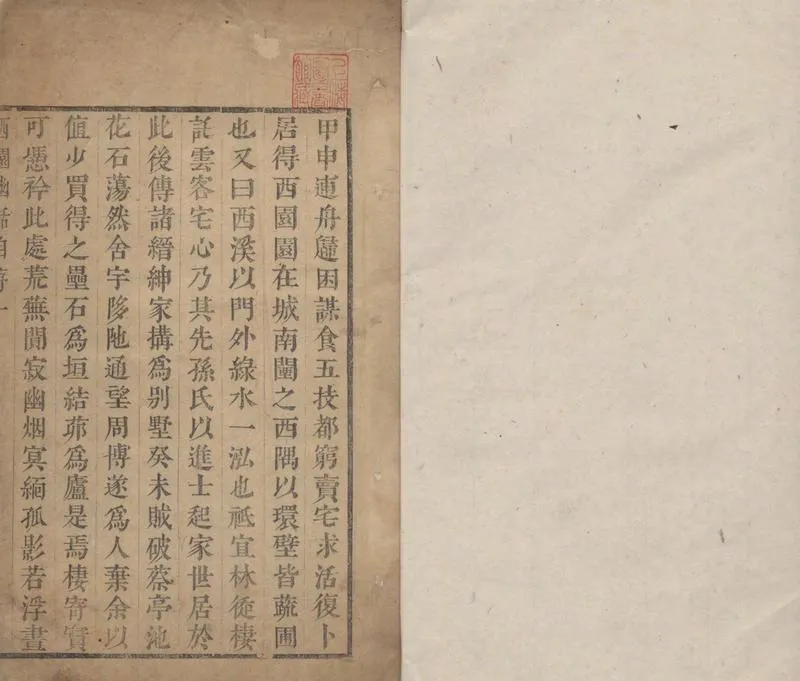 甲申舟困謀食五技都窮賣宅求活復卜
居得西園園在城南闉之西隅以環壁皆蔬圃
也又曰西溪以門外綠水一泓也祗宜林從棲
託雲客宅心乃其先孫氏以進士起家世居於
此後傳諸縉紳家搆爲別墅癸未賊破蔡亭池
花石蕩然舍宇陊阤通望周博遂爲人棄余以
值少買得之壘石爲垣結茆爲廬是焉棲寄實
可慿衿此處荒蕪闃寂幽烟冥緬孤影若浮晝
園幽話自序一